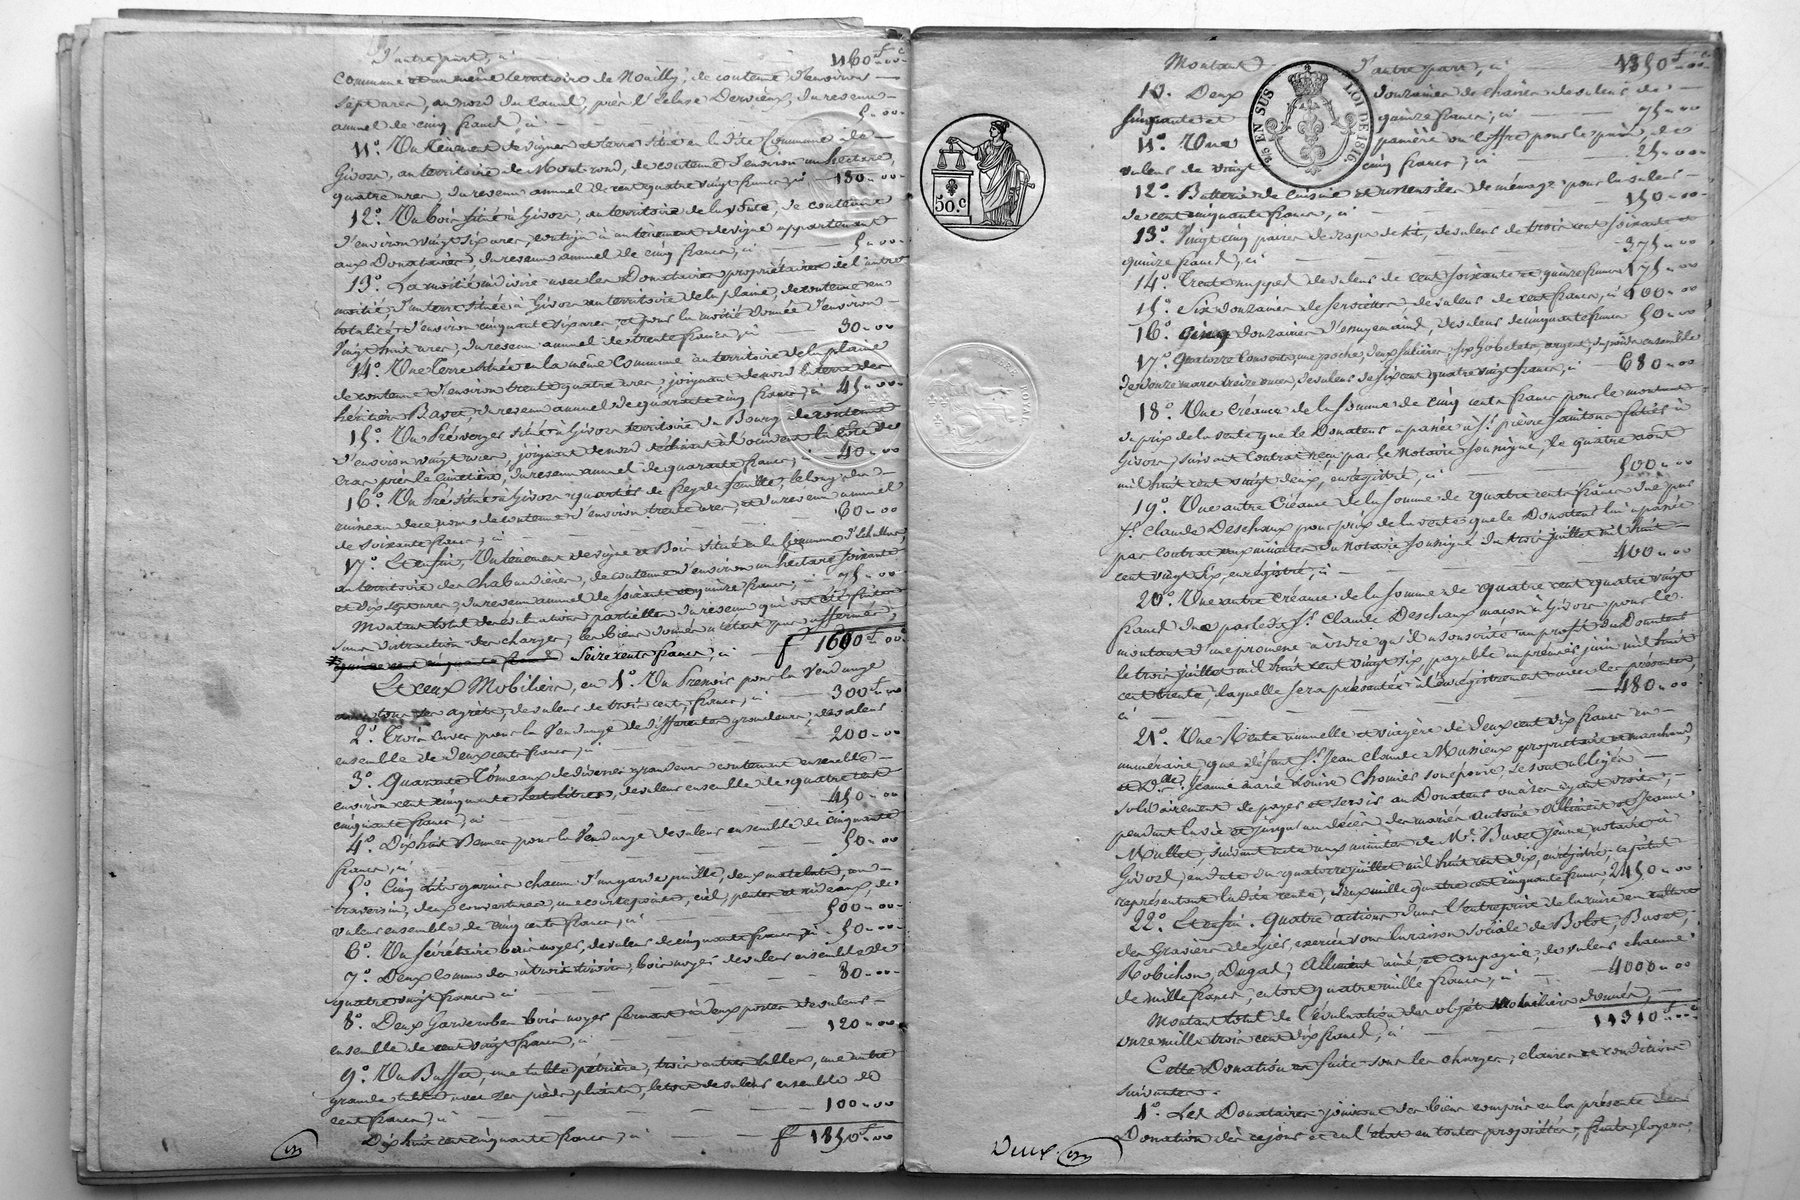 D'autre part, ci 1160f.00c
Commune et même territoire de Nouilly, de contenue d'environ
sept ares, au nord du Canal, près l'écluse Dervieux, du revenu
annuel de cinq francs, ci 5.00
11.° Un tènement de vignes et terre situé en la dite Commune de
Givors, au territoire de Montrond, de contenue d'environ un hectare,
quatre ares, du revenu annuel de cent quatre vingt francs, ci 180.00
12.° Un bois situé à Givors, au territoire de la , de contenue
d'environ vingt six ares, contigu à un tènement de vigne appartenant
aux Donataires, du revenu annuel de cinq francs, ci 5.00
13.° La moitié indivise avec les Donataires propriétaires de l'autre
moitié, d'un terre située à Givors au territoire de la plaine, de contenue en
totalité d'environ cinquante six ares, et pour la moitié donnée d'environ
vingt huit ares, du revenu annuel de trente francs, ci 30.00
14.° Une terre située en la même Commune au territoire de la plaine
de contenue d'environ trente quatre ares, joignant de nord la terre des
héritiers Bavet, du revenu annuel de quarante cinq francs, ci 45.00
15.° Un Pré verger situé à Givors territoire du Bourg de contenue
d'environ vingt ares, joignant de nord l'occident la côte de
Cras près le Cimetière, du revenu annuel de quarante francs, 40.00
16.° Un Pré situé à Givors quartier de , le long du
ruisseau de ce nom de contenue d'environ trente ares, et du revenu annuel
de soixante francs, ci 60.00
17.° Et enfin, Un tènement de vigne et Bois situé en la Commune d'Echallas,
au territoire des , de contenue d'environ un hectare soixante
et dix sept ares, du revenu annuel de soixante et quinze francs, ci 75.00
Montant total des évaluations partielles du revenu qui ont été faites
sans distraction des charges, les biens donnés n'étant pas affermés,
quinze cent cinquante francs Seize cents francs, ci f 1600f.00c
Et ceux Mobiliers, en 1.° Un Pressoir pour la Vendange
avec tous ses agrès, de valeur de trois cents francs, ci 300f.00
2.° Trois cuves pour la Vendange de différentes grandeurs, de valeur
ensemble de deux cents francs, ci 200.00
3.° Quarante Tonneaux de diverses grandeurs contenant ensemble
environ cent cinquante hectolitres, de valeur ensemble de quatre cent
cinquante francs, ci 450.00
4.° Dix huit Bennes pour la Vendange de valeur ensemble de cinquante
francs, ci 50.00
5.° Cinq lits garnis chacun d'un garde paille, deux matelats, un
traversin, deux couvertures, une courtepointe, ciel, pentes et rideaux, de
valeur ensemble de cinq cents francs, ci 500.00
6.° Un secrétaire bois noyer, de valeur de cinquante francs, ci 50.00
7.° Deux Commodes à trois tiroirs, bois noyer de valeur ensemble de
quatre vingt francs ci 80.00
8.° Deux Garderobes bois noyer fermant à deux portes de valeur
ensemble de cent vingt francs, ci 120.00
9.° Un Buffet, une table pétrière, trois autres tables, une autre
grande table avec ses pieds pliants, le tout de valeur ensemble de
cent francs, ci 100.00
Dix huit cent cinquante francs, ci f 1850f.00
50.c
TIMBRE ROYAL
Deux
Montant d'autre part, ci 1850f.00c
10.° Deux douzaines de chaises de valeur de
soixante et quinze francs, ci 75.00
11.° Une panière ou coffre pour le pain, de
valeur de vingt cinq francs, ci 25.00
EN SUS LOI DE 1816
12.° Batterie de cuisine et ustensiles de ménage pour la valeur
de cent cinquante francs, ci 150.00
13.° Vingt cinq paires de draps de lit, de valeur de trois cent soixante et
quinze francs, ci 375.00
14.° Trente nappes de valeur de cent soixante et quinze francs 175.00
15.° Six douzaines de serviettes de valeur de cent francs, ci 100.00
16.° Cinq douzaines d'essuyemains, de valeur de cinquante francs 50.00
17.° Quatorze Couverts, une poche, deux salières, six gobelets argent, du poids ensemble
de douze marcs treize onces, de valeur de six cent quatre vingt francs, ci 680.00
18.° Une Créance de la somme de cinq cents francs pour le montant
du prix de la vente que le Donateur a passée à Sr. pierre à
Givors, suivant Contrat reçu par le Notaire soussigné, le quatre août
mil huit cent vingt deux, enregistré, ci 500.00
19.° Une autre Créance de la somme de quatre cents francs due par
Sr. Claude Deschaux pour prix de la vente que le Donateur lui a passée
par Contrat aux minutes du Notaire soussigné du trois juillet mil huit
cent vingt six, enregistré, ci 400.00
20.° Une autre Créance de la somme de quatre cent quatre vingt
francs due par le dit Sr. Claude Deschaux maçon à Givors pour le
montant d'une promesse à ordre qu'il a souscrite au profit du Donateur
le trois juillet mil huit cent vingt six, payable au premier juin mil huit
cent trente, laquelle sera présentée à l'enregistrement avec les présentes,
ci 480.00
21.° Une Rente annuelle et viagère de deux cent dix francs en
numéraire que défunt Sr. Jean Claude Mussieux propriétaire et marchand,
et Dlle. Jeanne marie Louise Chomier son épouse, se sont obligés
solidairement de payer et servir au Donateur ou à ses ayant droits,
pendant la vie et jusqu'au décès des mariés Antoine Alliment et Jeanne
Mallet, suivant acte aux minutes de Me. Buvet jeune, notaire à
Givors, en date du quatorze juillet mil huit cent dix, enregistré, capital
représentant la dite rente, deux mille quatre cent cinquante francs 2450.00
22.° Et enfin. Quatre actions dans l'entreprise de la mise en culture
des Graviers de Gier, exercée sous la raison sociale de Bolot, Buvet,
Robichon, Dugas, Alliment aîné, et compagnie, de valeur chacune
de mille francs, en tout quatre mille francs, ci 4000.00
Montant total de l'évaluation des objets mobiliers donnés,
onze mille trois cent dix francs, ci 11310f.00c
Cette Donation est faite sous les charges, clauses et conditions
suivantes.
1.° Les Donataires jouiront des biens compris en la présente
Donation dès ce jour et en l'état en toutes propriétés, fruits, loyers,